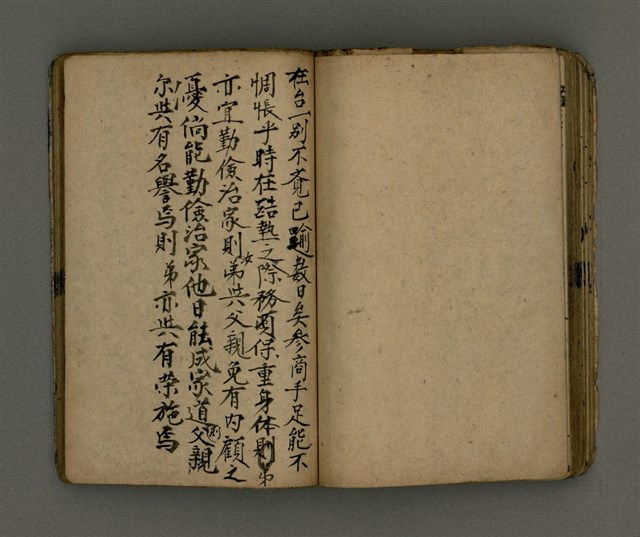 在台一別不覔已踰數日矣參商手足能不
惆悵乎時在酷熱之際務須保重身体則弟
亦宜勤儉治家則弟共父親免有内顧之
憂倘能勤儉治家他日能成家道則父親
尔共有名譽焉則弟亦共有荣施焉